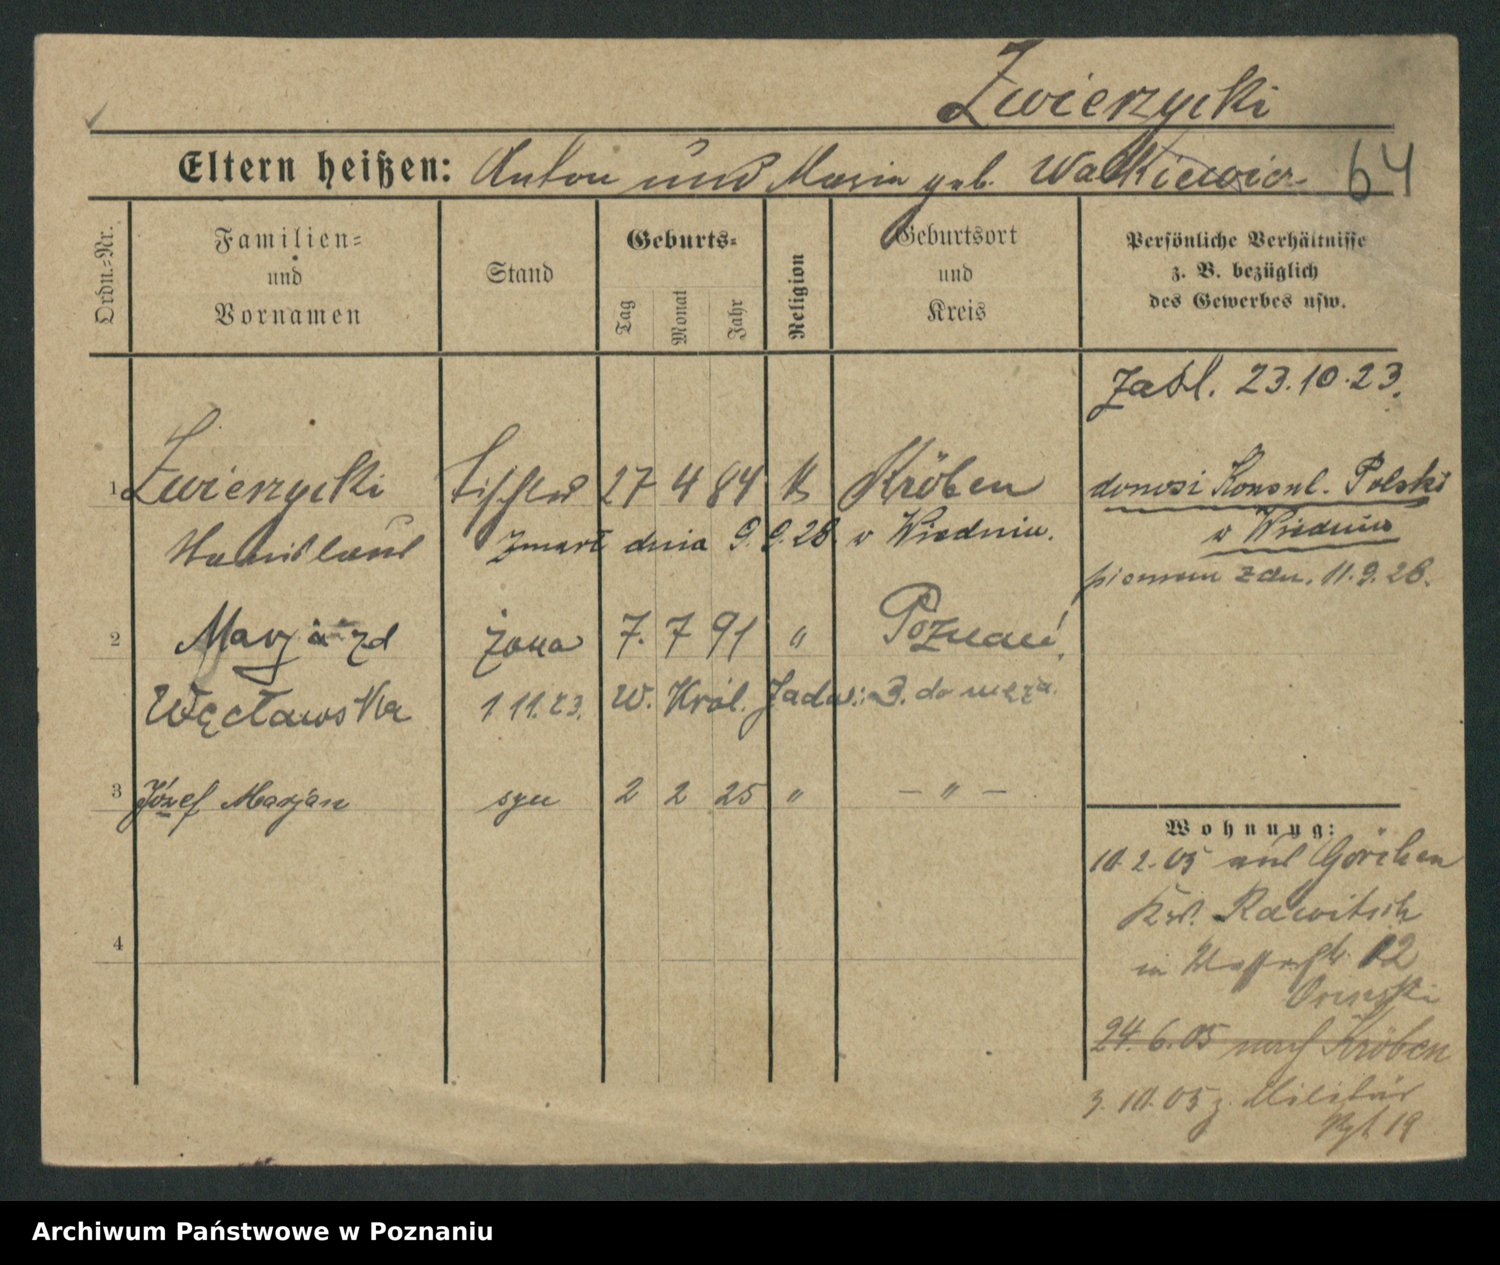 Zwierzycki
Eltern heißen: Anton und Maria geb. Walkiewicz 64
Ordn.-Nr.
Familien-
und
Vornamen
Stand
Geburts-
Tag
Monat
Jahr
Religion
Geburtsort
und
Kreis
Persönliche Verhältnisse
z. B. bezüglich
des Gewerbes usw.
23.10.23.
1 Zwierzycki Tischler 27 4 84 k Kröben
donosi Konsul. Polski
Stanislaus zmarł dnia 9.9.28. w Wiedniu.
w Wiedniu
pismem z dn. 11.9.28.
2 Marja zd żona 7. 7 91 " Poznań
Węcławska 1 11.23. W. Król. Jadw: 3. do męża.
3 Józef Marjan syn 2 2 25 " — " —
4
Wohnung:
10.2.05 aus Görchen
Krs. Rawitsch
in 12
24.6.05 nach Kröben
3.10.05 z. Militär
Rgt 19
Archiwum Państwowe w Poznaniu